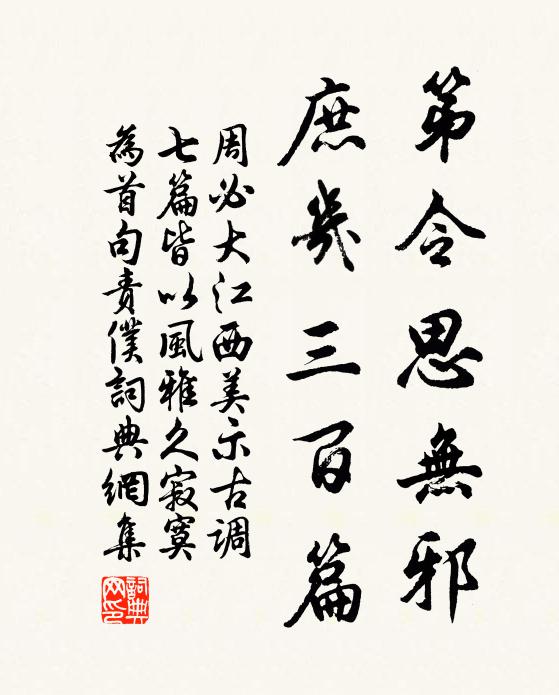 第令思無邪
庶幾三百篇
周必大江西美示古调
七篇皆以風雅久寂寞
為首句責僕詞典網集
詞典网印